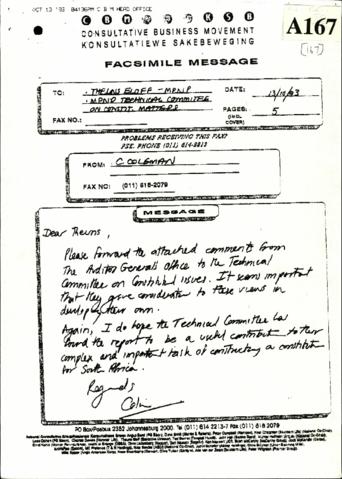 OCT 13 '93 04:13PM C B M HEAD OFFICE
A167
[167]
C B M K S B
CONSULTATIVE BUSINESS MOVEMENT
KONSULTATIEWE SAKEBEWEGING
FACSIMILE MESSAGE
TO: - THEUNS ELOFF - MPNP
- MPNP TECHNICAL COMMITTEE
ON CONSTIT. MATTERS
FAX NO.:
DATE: 13/10/93
PAGES: 5
(INCL. COVER)
PROBLEMS RECEIVING THIS FAX?
PSE. PHONE (011) 614-2213
FROM: C COLEMAN
FAX NO: (011) 618-2079
MESSAGE
Dear Theuns,
Please forward the attached comments from
the Auditor General's office to the Technical
Committee on Constitutional issues. It seems important
that they give consideration to these views in
developing their own.
Again, I do hope the Technical Committee has
found the report to be a useful contribution to their
complex and important task of constructing a constitution
for South Africa.
Regards
Colin
PO Box/Posbus 2352 Johannesburg 2000. Tel (011) 614 2213-7 Fax (011) 618 2079